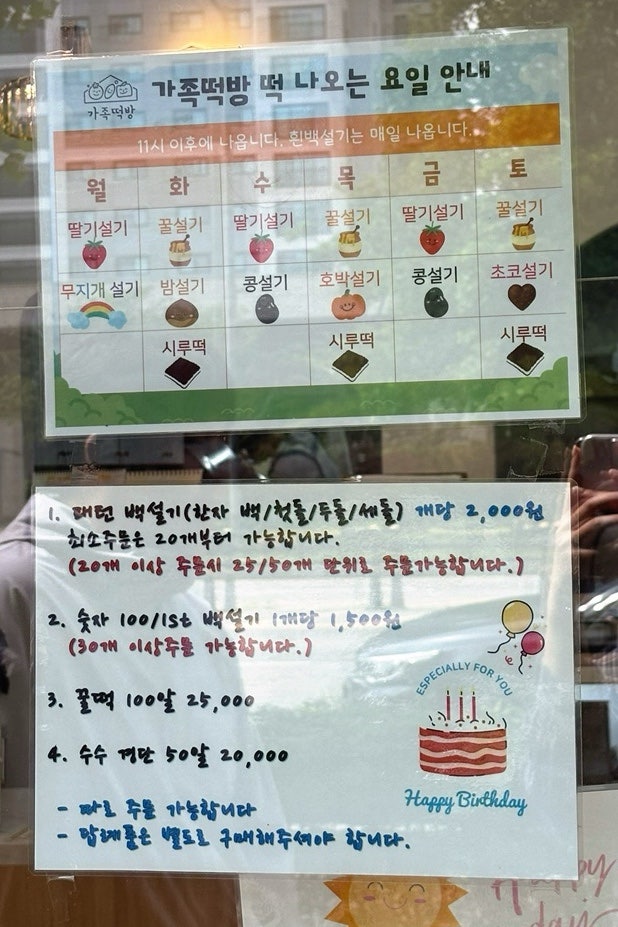 가족떡방
가족떡방 떡 나오는 요일 안내
11시 이후에 나옵니다. 흰백설기는 매일 나옵니다.
월 화 수 목 금 토
딸기설기 꿀설기 딸기설기 꿀설기 딸기설기 꿀설기
무지개 설기 밤설기 콩설기 호박설기 콩설기 초코설기
시루떡 시루떡 시루떡
1. 패턴 백설기(한자 백/첫돌/두돌/세돌) 개당 2,000원
최소주문은 20개부터 가능합니다.
(20개 이상 주문시 25/50개 단위로 주문가능합니다.)
2. 숫자 100/1St 백설기 1개당 1,500원
(30개 이상주문 가능합니다.)
3. 꿀떡 100알 25,000
4. 수수 경단 50알 20,000
- 따로 주문 가능합니다
- 답례품은 별도로 구매해주셔야 합니다.
ESPECIALLY FOR YOU
Happy Birthday
Happy
day